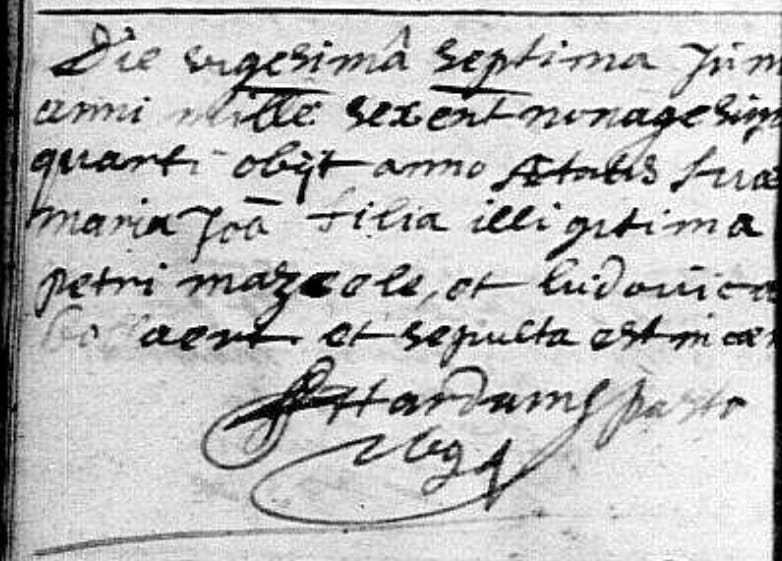 Die vigesimâ septima Jun
anni mille sexent nonagesim
quarti obijt anno Ætatis suæ
maria Joā filia illigitima
petri mazeele, et ludovica
aert et sepulta est in cæ
Hardums pasto
1694